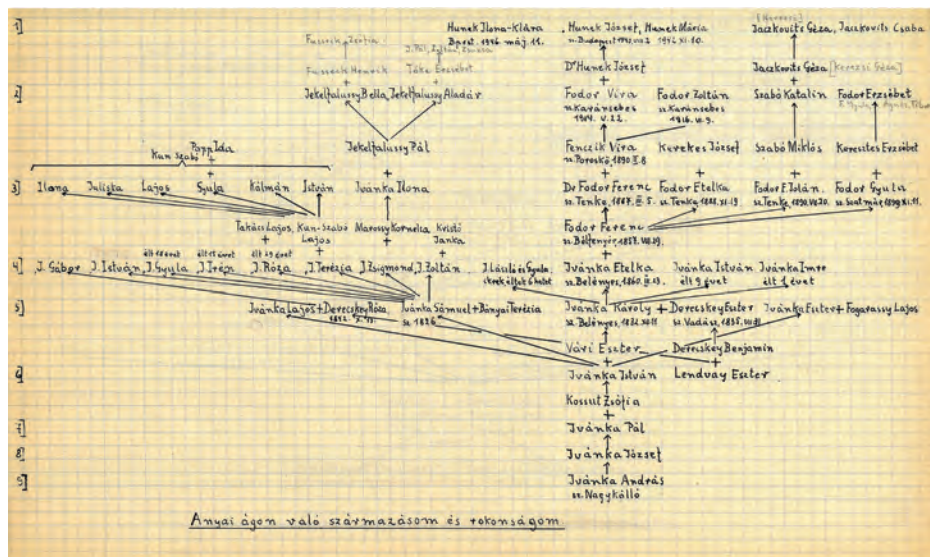 1]
Hunek Ilona-Klára
Bpest. 1946. máj. 11.
Hunek József, Hunek Mária
Jaczkovits Géza, Jaczkovits Csaba
Fusseck Zsófia
J. Pál, Zoltán, Zsuzsa
Fusseck Henrik
+
Tőke Erzsébet
+
Dr Hunek József
+
Jaczkovits Géza [Kerezsi Géza]
+
2]
Jekelfalussy Bella, Jekelfalussy Aladár
Fodor Vira
sz. Karánsebes
1904. V. 22.
Fodor Zoltán
sz. Karánsebes
1916. VI. 9.
Szabó Katalin
Fodor Erzsébet
Papp Ida
Kun Szabó +
Jekelfalussy Pál
+
Fenczik Vira
sz. Poroskő, 1890. II. 8
+
Kerekes József
+
Szabó Miklós
+
Keresztes Erzsébet
+
3]
Ilona
Juliska
Lajos
Gyula
Kálmán
István
Ivánka Ilona
Dr Fodor Ferenc
sz. Tenke, 1887. III. 5.
Fodor Etelka
sz. Tenke, 1888. XI. 19
Fodor F. Jolán.
sz. Tenke, 1890. VII. 20.
Fodor Gyula
sz. Szatmár, 1899. XI. 11.
Takács Lajos,
+
Kun-Szabó
Lajos
+
Marossy Kornélia
+
Kristó
Janka
+
Fodor Ferenc
+
4]
J. Gábor
J. István,
élt 18 évet
J. Gyula
élt 15 évet
J. Irén
élt 29 évet
J. Róza,
J. Terézia
J. Zsigmond,
J. Zoltán.
J. László és Gyula
ikrek éltek 6 hetet
Ivánka Etelka
sz. Belényes, 1860. III. 23.
Ivánka István
élt 9 évet
Ivánka Imre
élt 1 évet
5]
Ivánka Lajos + Derecskey Róza,
Ivánka Sámuel + Bányai Terézia
sz. 1826
Ivánka Károly + Derecskey Eszter
Ivánka Eszter + Fogarassy Lajos
Vári Eszter
+
Derecskey Benjamin
+
6]
Ivánka István
Lendvay Eszter
Kossut Zsófia
+
7]
Ivánka Pál
8]
Ivánka József
9]
Ivánka András
sz. Nagykálló
Anyai ágon való származásom és rokonságom.